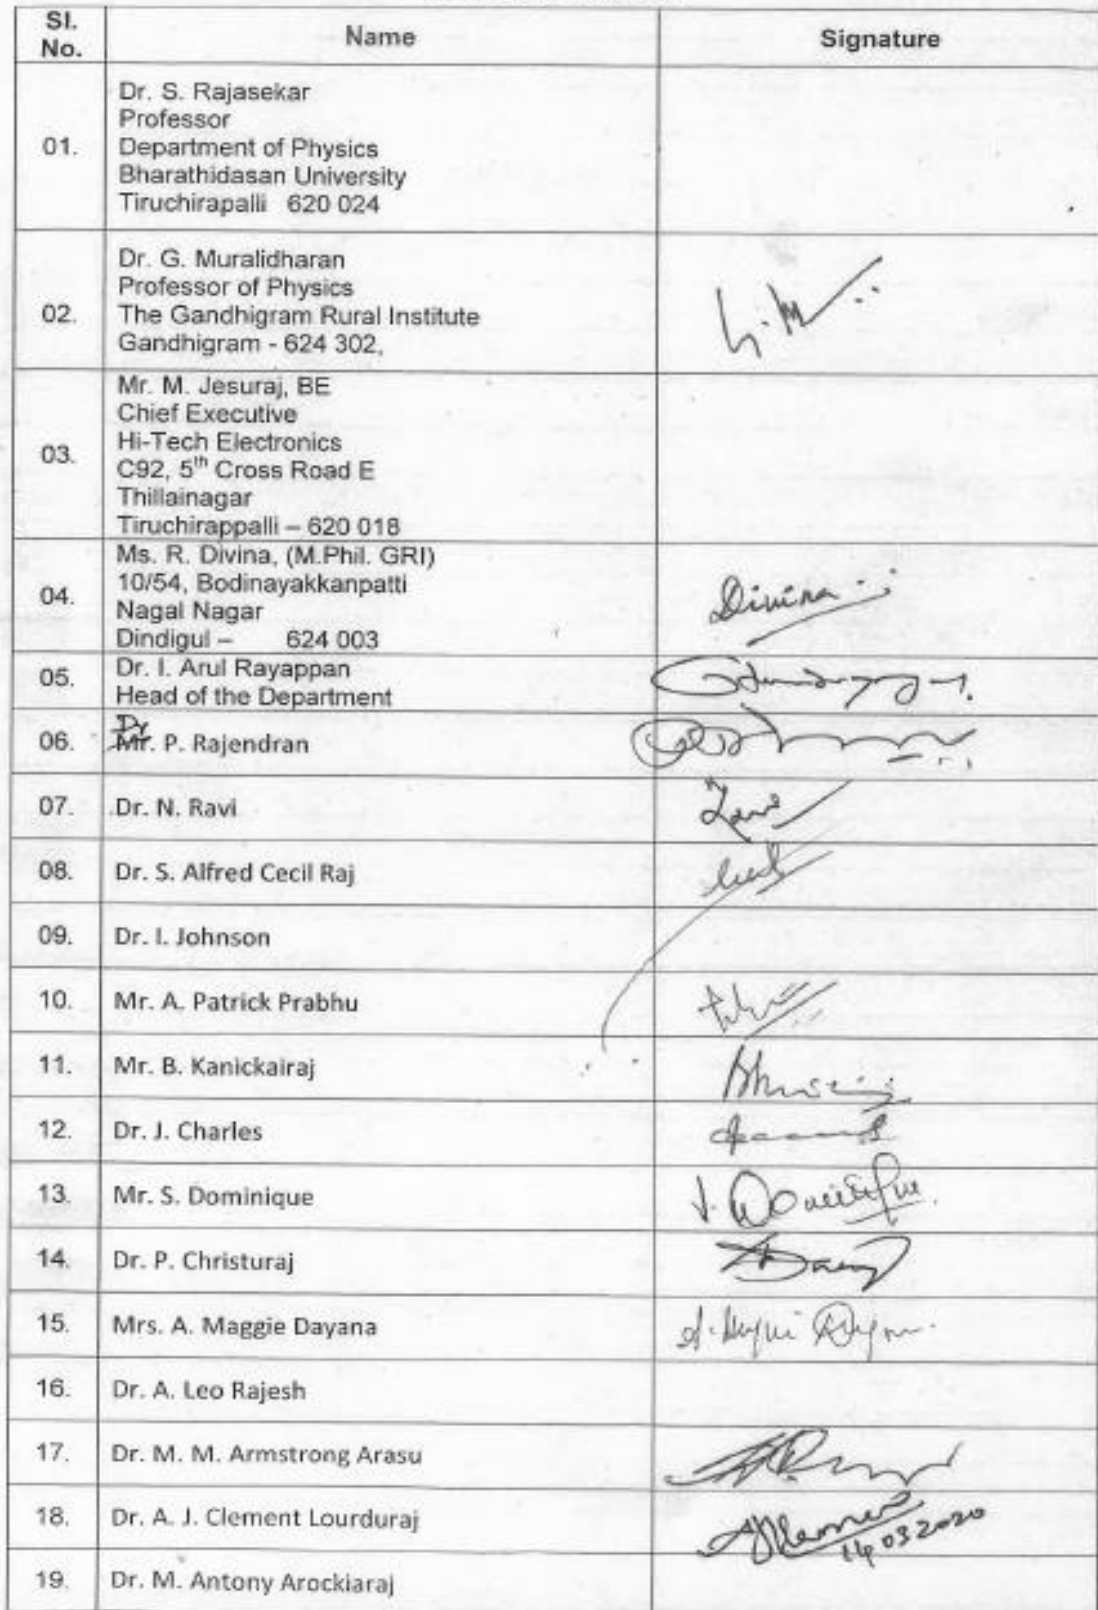 Sl. No. Name Signature
01. Dr. S. Rajasekar
Professor
Department of Physics
Bharathidasan University
Tiruchirapalli 620 024
02. Dr. G. Muralidharan
Professor of Physics
The Gandhigram Rural Institute
Gandhigram - 624 302,
G.M
03. Mr. M. Jesuraj, BE
Chief Executive
Hi-Tech Electronics
C92, 5th Cross Road E
Thillainagar
Tiruchirappalli – 620 018
04. Ms. R. Divina, (M.Phil. GRI)
10/54, Bodinayakkanpatti
Nagal Nagar
Dindigul – 624 003
Divina
05. Dr. I. Arul Rayappan
Head of the Department
Dr
06. Mr. P. Rajendran
07. Dr. N. Ravi
08. Dr. S. Alfred Cecil Raj
09. Dr. I. Johnson
10. Mr. A. Patrick Prabhu
11. Mr. B. Kanickairaj
12. Dr. J. Charles
13. Mr. S. Dominique
14. Dr. P. Christuraj
15. Mrs. A. Maggie Dayana
16. Dr. A. Leo Rajesh
17. Dr. M. M. Armstrong Arasu
18. Dr. A. J. Clement Lourduraj
14 03 2020
19. Dr. M. Antony Arockiaraj